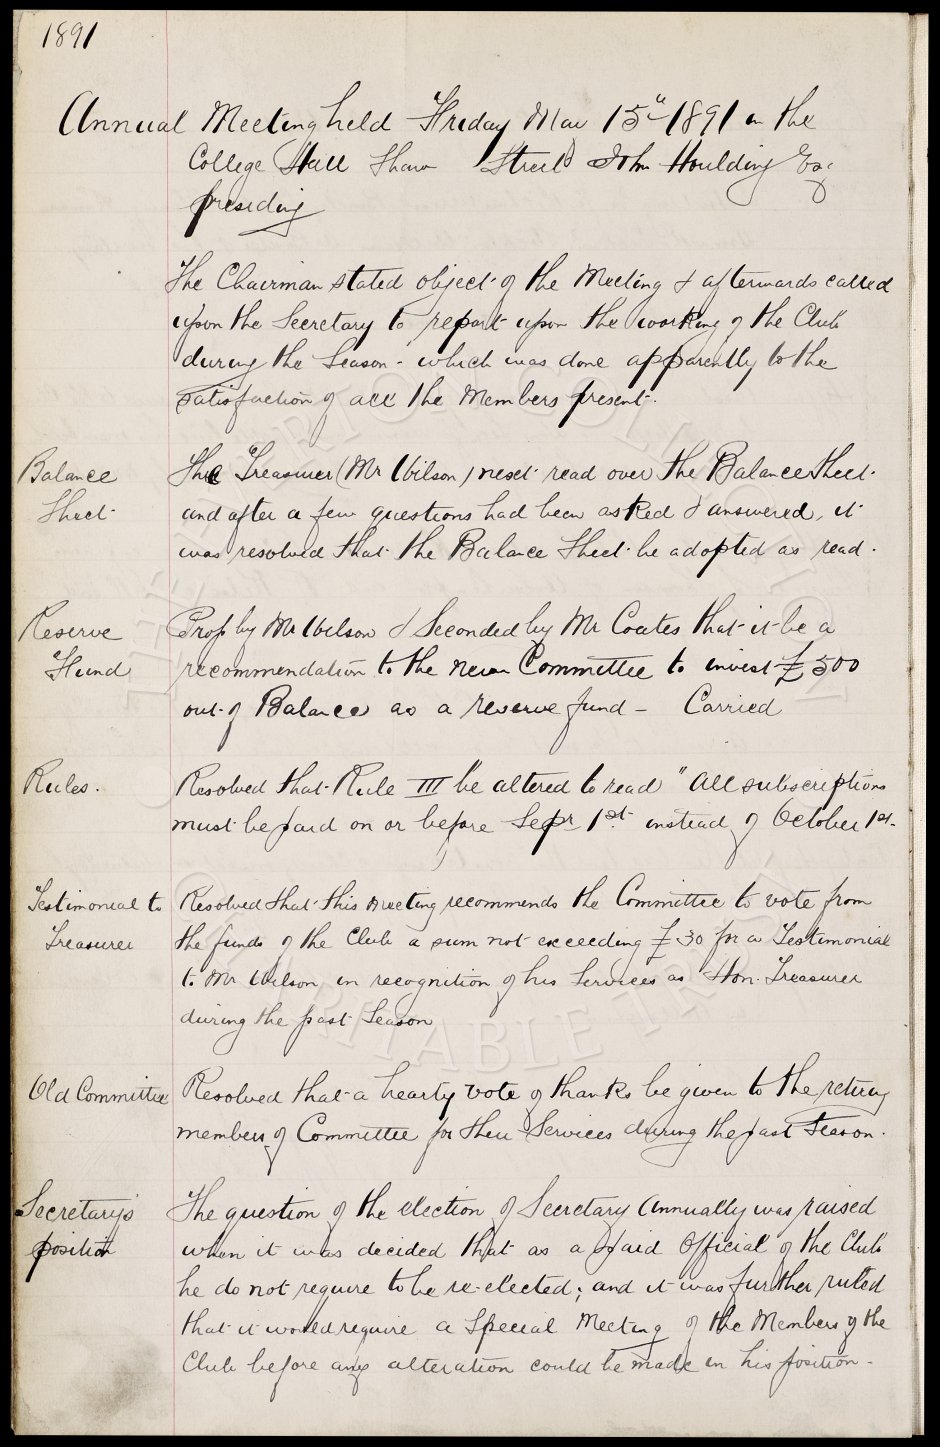 1891
Annual Meeting held Friday May 15th 1891 in the
College Hall Shaw Street John Houlding Esq
presiding
The Chairman stated object of the Meeting & afterwards called
upon the Secretary to report upon the working of the Club
during the Season - which was done apparently to the
satisfaction of all the Members present.
Balance
Sheet
The Treasurer (Mr Wilson) next read over the Balance Sheet
and after a few questions had been asked & answered, it
was resolved that the Balance Sheet be adopted as read.
Reserve
Fund
Prop by Mr Wilson & Seconded by Mr Coates that it be a
recommendation to the new Committee to invest £500
out of Balance as a reserve fund - Carried
Rules.
Resolved that Rule III be altered to read "All subscriptions
must be paid on or before Sepr 1st. instead of October 1st.
Testimonial to
Treasurer
Resolved that this meeting recommends the Committee to vote from
the funds of the Club a sum not exceeding £30 for a Testimonial
to Mr Wilson in recognition of his Services as Hon. Treasurer
during the past Season
Old Committee
Resolved that a hearty vote of thanks be given to the retiring
members of Committee for their Services during the past Season.
Secretary's
position
The question of the election of Secretary Annually was raised
when it was decided that as a paid Official of the Club
he do not require to be re-elected; and it was further ruled
that it would require a Special Meeting of the Members of the
Club before any alteration could be made in his position -
EVERTON COLLECTION
CHARITABLE TRUST